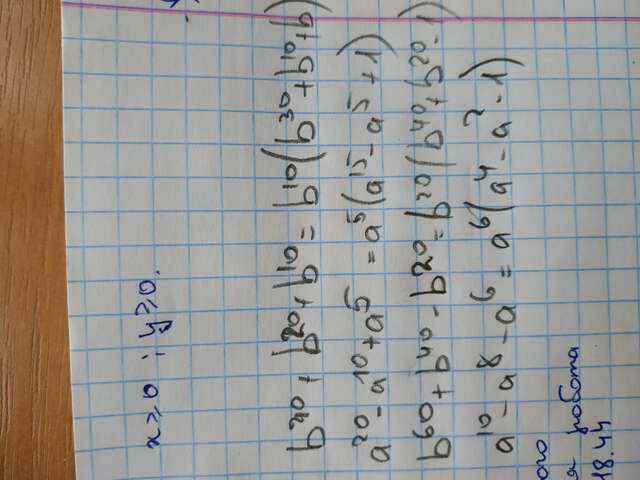 x ≥ 0 ; y ≥ 0.
b⁴⁰ + b²⁰ + b¹⁰ = b¹⁰(b³⁰ + b¹⁰ + b)
a²⁰ - a¹⁰ + a⁵ = a⁵(a¹⁵ - a⁵ + 1)
b⁶⁰ + b⁴⁰ - b²⁰ = b²⁰(b⁴⁰ + b²⁰ - 1)
a¹⁰ - a⁸ - a⁶ = a⁶(a⁴ - a² - 1)
ого
я робота
18.44